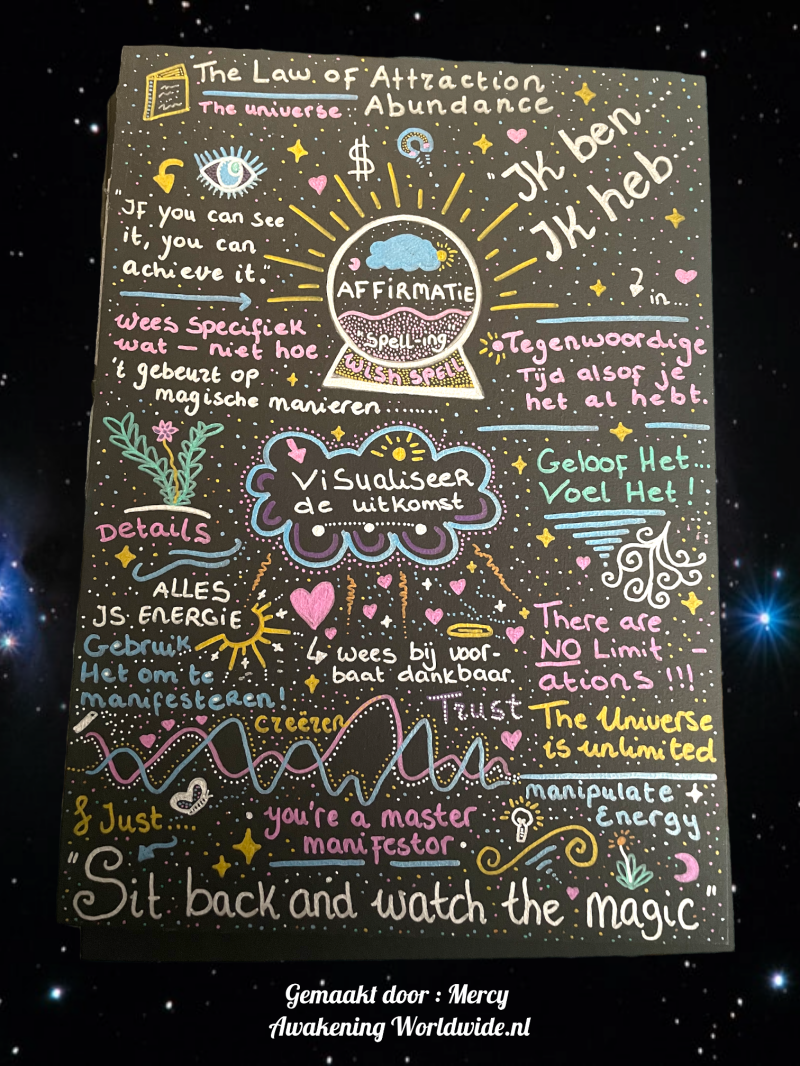 The Law of Attraction
The universe Abundance
$
"IK ben
IK heb..."
"IF you can see
it, you can
achieve it."
in...
AFFIRMATIE
"spell-ing"
Wish spell
wees specifiek
wat – niet hoe
't gebeurt op
magische manieren ........
Tegenwoordige
Tijd alsof je
het al hebt.
ViSualiseeR
de uitkomst
Geloof Het...
Voel Het!
Details
ALLES
IS ENERGIE
Gebruik
Het om te
manifesteRen!
wees bij voor-
baat dankbaar.
There are
NO Limit –
ations !!!
creëren
Trust
The Universe
is unlimited
manipulate
Energy
& Just....
you're a master
manifestor
"Sit back and watch the magic"
Gemaakt door : Mercy
Awakening Worldwide.nl